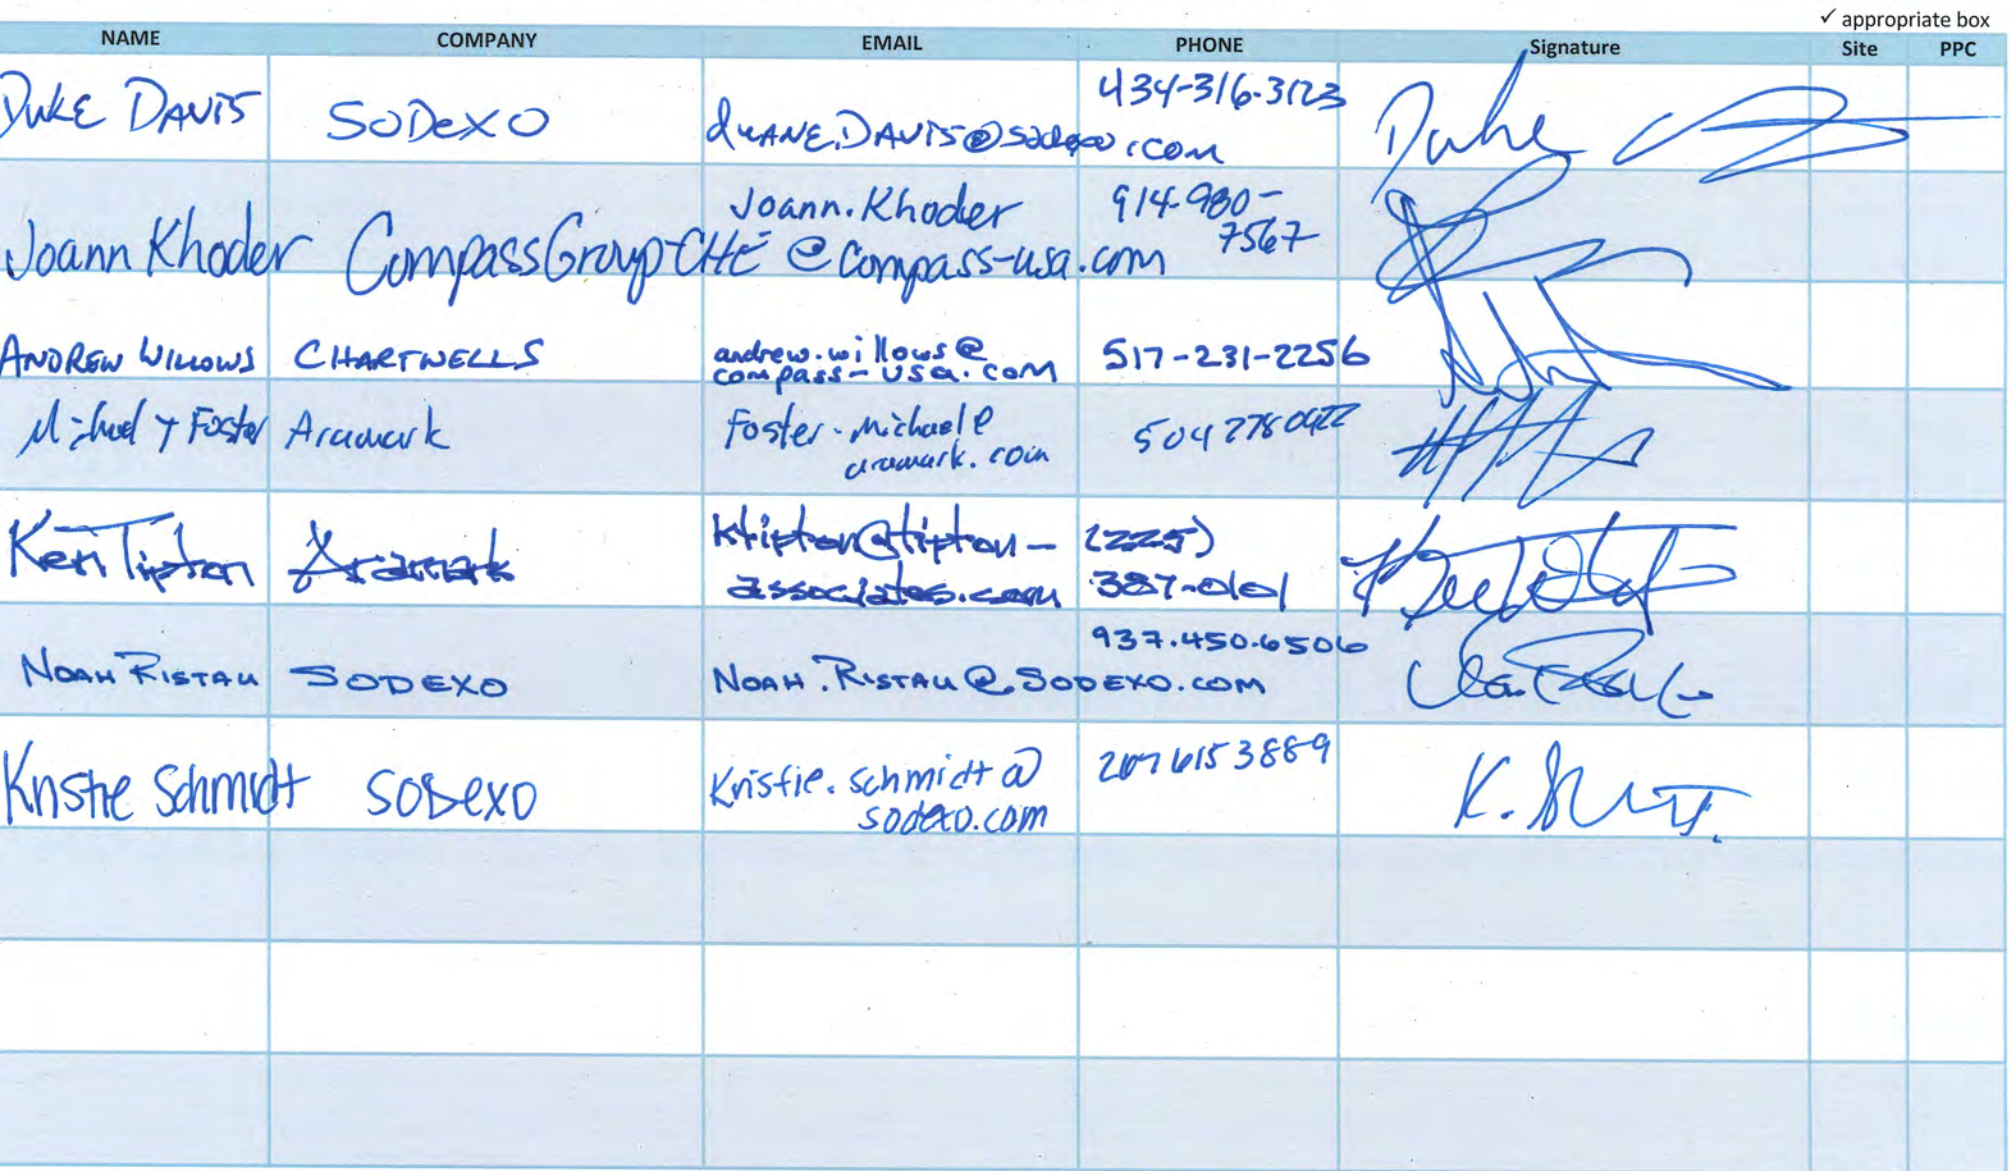 ✓ appropriate box
NAME COMPANY EMAIL PHONE Signature Site PPC
DUKE DAVIS SODEXO duANE.DAVIS@sodexo.com 434-316-3123 Duke
Joann Khoder CompassGroup-CHE Joann.Khoder @compass-usa.com 914-980-7567
ANDREW WILLOWS CHARTWELLS andrew.willows@ compass-usa.com 517-231-2256
Michael Foster Aramark Foster-Michael@ aramark.com 504
Ken Tipton Aramark ktipton@tipton- associates.com (225) 387-0101
NOAH RISTAU SODEXO NOAH.RISTAU@SODEXO.COM 937.450.6506
Kristie Schmidt SODEXO Kristie.schmidt@ sodexo.com 207 615 3889 K.